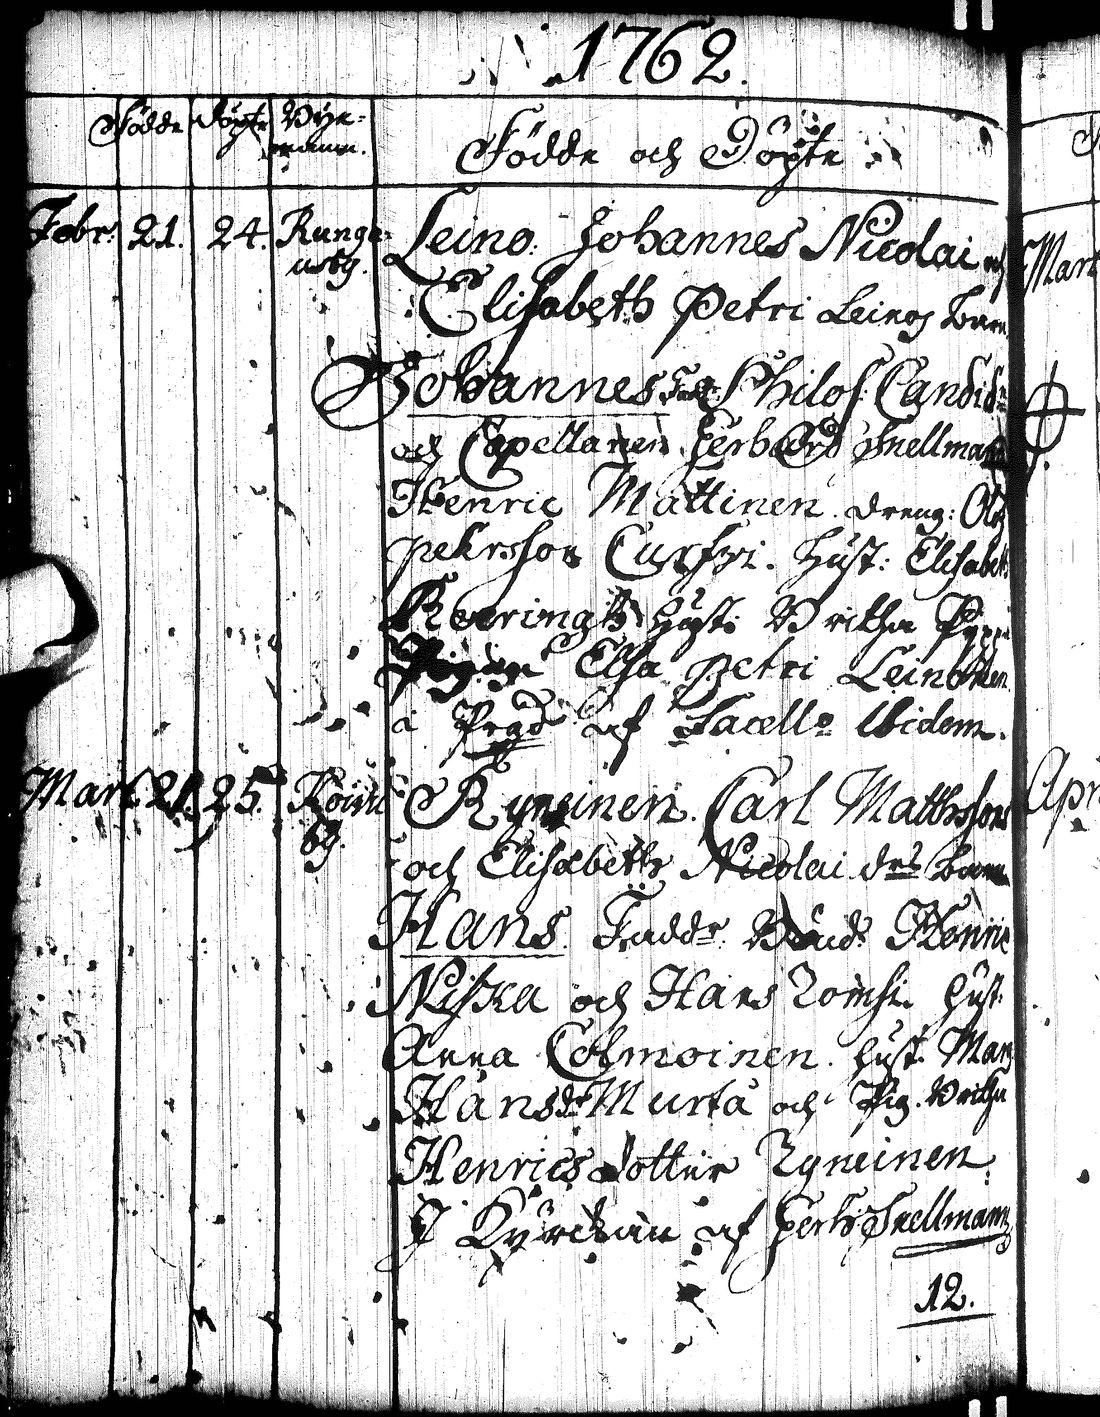 1762.
Födde Döpte Bÿe-
namn.
Födde och Döpte
Febr: 21. 24. Runge- Leino. Johannes Nicolai och
usbÿ. Elisabeth Petri Leinos barn
Johannes Fadd: Philos: Candid:
och Capellanen Herr Snellman
Henric Mattinen. Dreng: Olof
Pehrsson Hust: Elisabeth
Hust: Britha
Pigan Elsa Petri Leinonen
à Prgd af Sacello ibidem.
Mart. 21. 25. Ryneinen. Carl Mattsson
bÿ. och Elisabeth Nicolai drs barn
Hans. Faddr: Henric
Niska och Hans Hust:
Anna Colmoinen. Hust: Marg
Hans dr Murta och Pig. Britha
Henrics dotter Ryneinen.
I Kÿrckan af Herr Snellman
12.
Mart
Apr